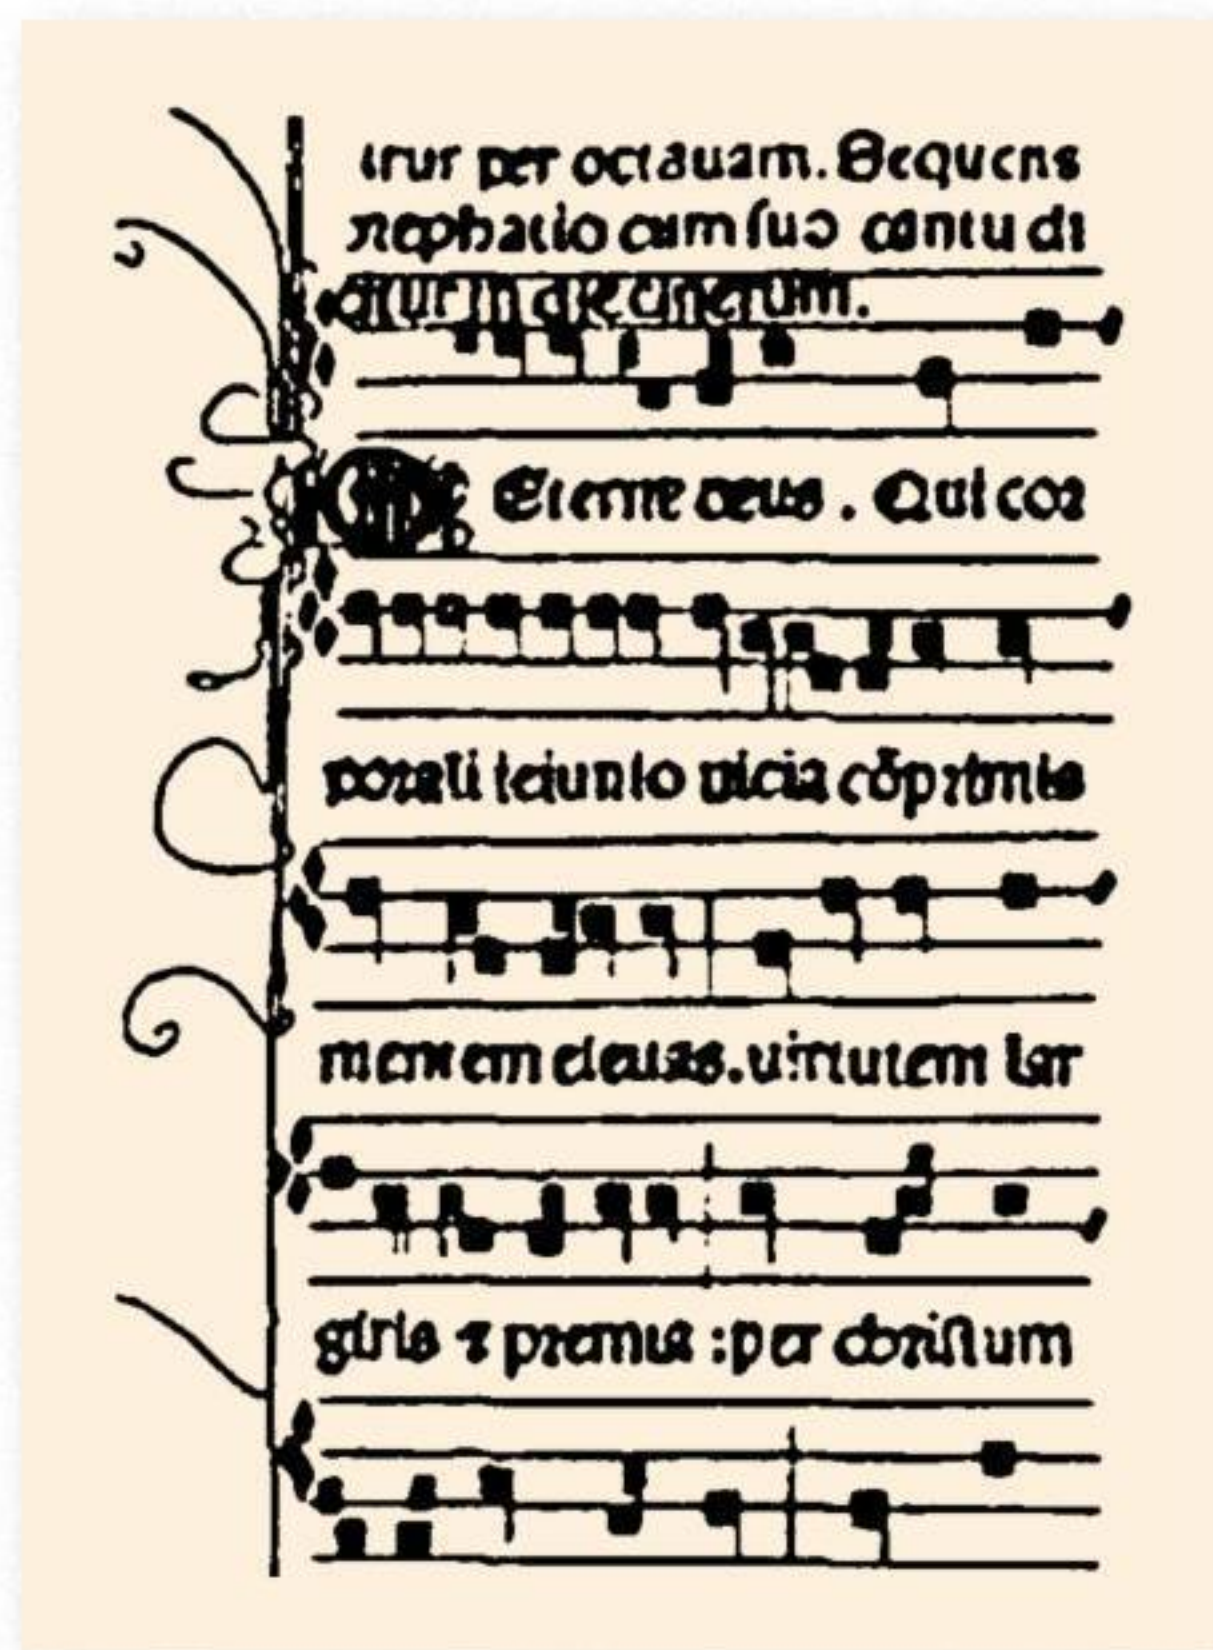 itur per octauam. Sequens
prephatio cum suo cantu di
citur in die cinerum.
Eterne deus. Qui cor
porali ieiunio uicia cōprimis
mentem eleuas. uirtutem lar
giris ⁊ premia : per christum